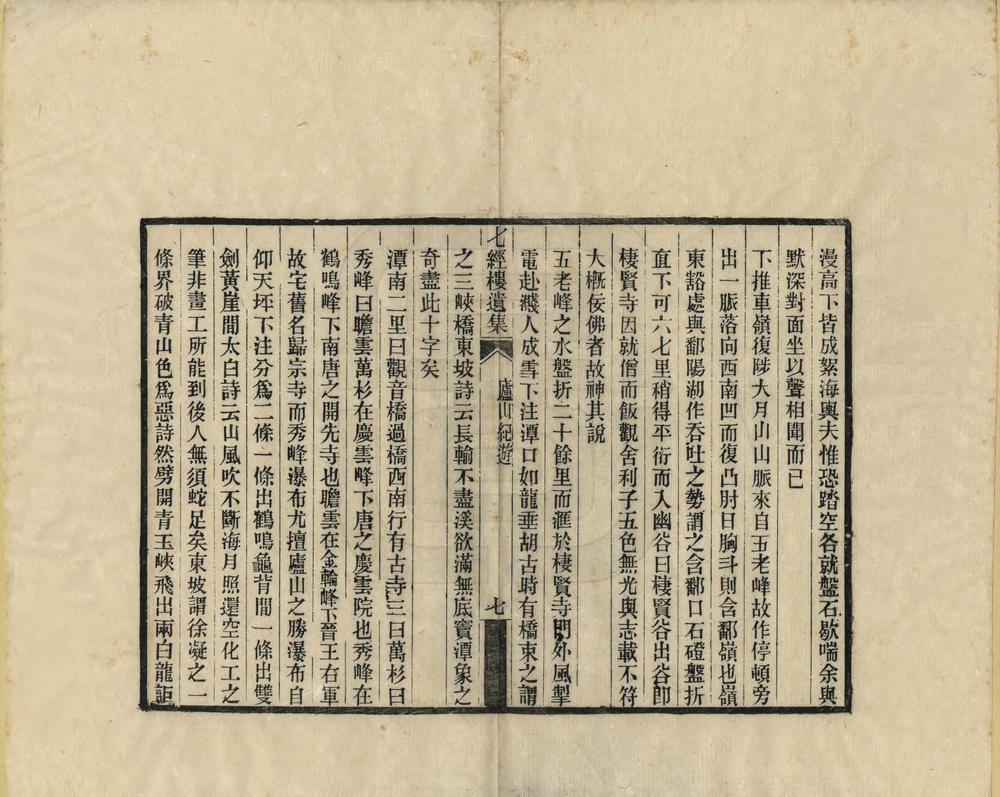 漫高下皆成絮海輿夫惟恐踏空各就盤石歇喘余與
默深對面坐以聲相聞而已
下推車嶺復陟大月山山脈來自五老峰故作停頓旁
出一脈落向西南凹而復凸肘日胸斗則含鄱嶺也嶺
東豁處與鄱陽湖作吞吐之勢謂之含鄱口石磴盤折
直下可六七里稍得平衍而入幽谷曰棲賢谷出谷卽
棲賢寺因就僧而飯觀舍利子五色無光與志載不符
大槪佞佛者故神其說
五老峰之水盤折二十餘里而滙於棲賢寺門外風掣
電赴濺人成雪下注潭口如龍垂胡古時有橋束之謂
七經樓遺集
廬山紀遊
七
之三峽橋東坡詩云長輸不盡溪欲滿無底竇潭象之
奇盡此十字矣
潭南二里曰觀音橋過橋西南行有古寺三曰萬杉曰
秀峰曰瞻雲萬杉在慶雲峰下唐之慶雲院也秀峰在
鶴鳴峰下南唐之開先寺也瞻雲在金輪峰下晉王右軍
故宅舊名歸宗寺而秀峰瀑布尤擅廬山之勝瀑布自
仰天坪下注分爲二條一條出鶴鳴龜背間一條出雙
劍黃崖間太白詩云山風吹不斷海月照還空化工之
筆非畫工所能到後人無須蛇足矣東坡謂徐凝之一
條界破青山色爲惡詩然劈開青玉峽飛出兩白龍詎